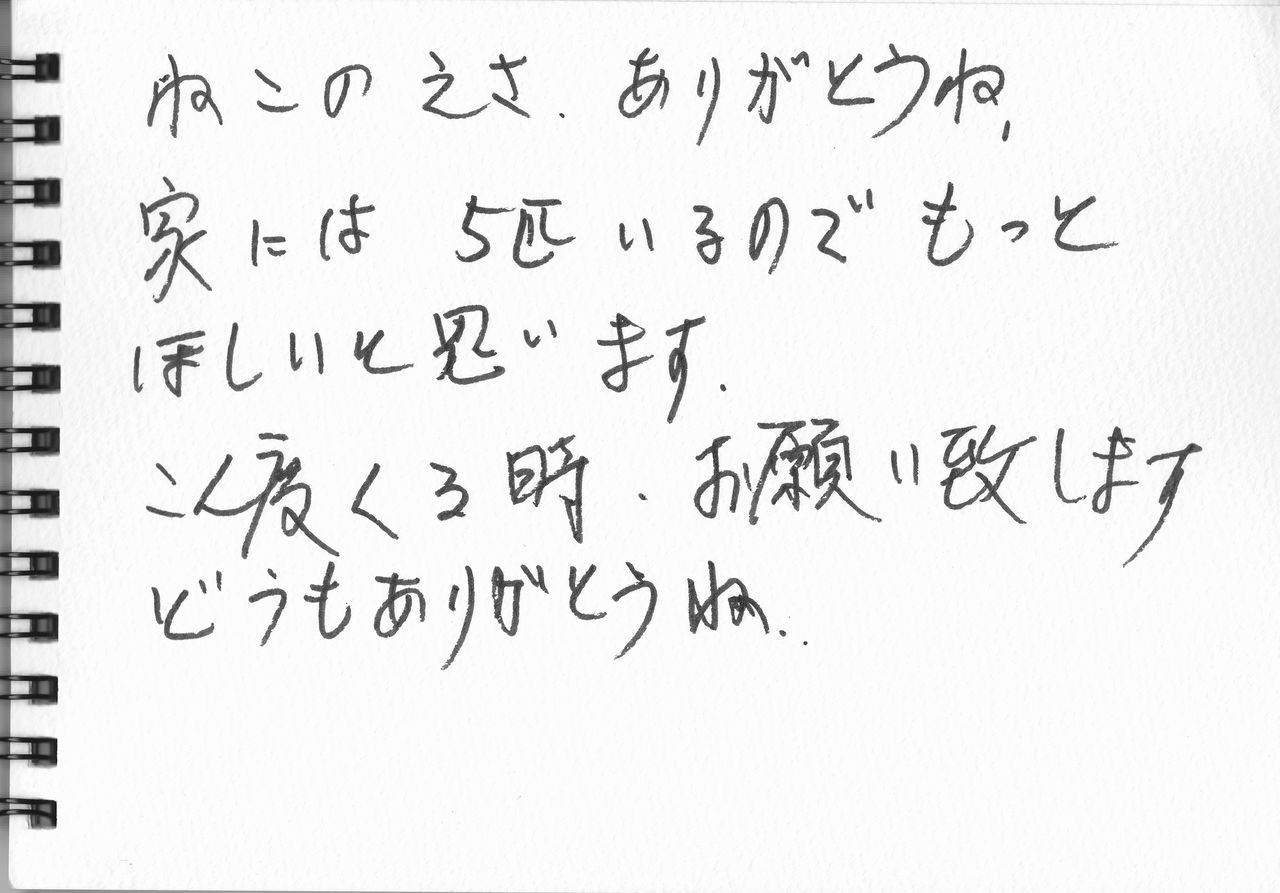 ねこのえさ. ありがとうね,
家には 5匹いるのでもっと
ほしいと思います.
こん度くる時. お願い致します
どうもありがとうね..